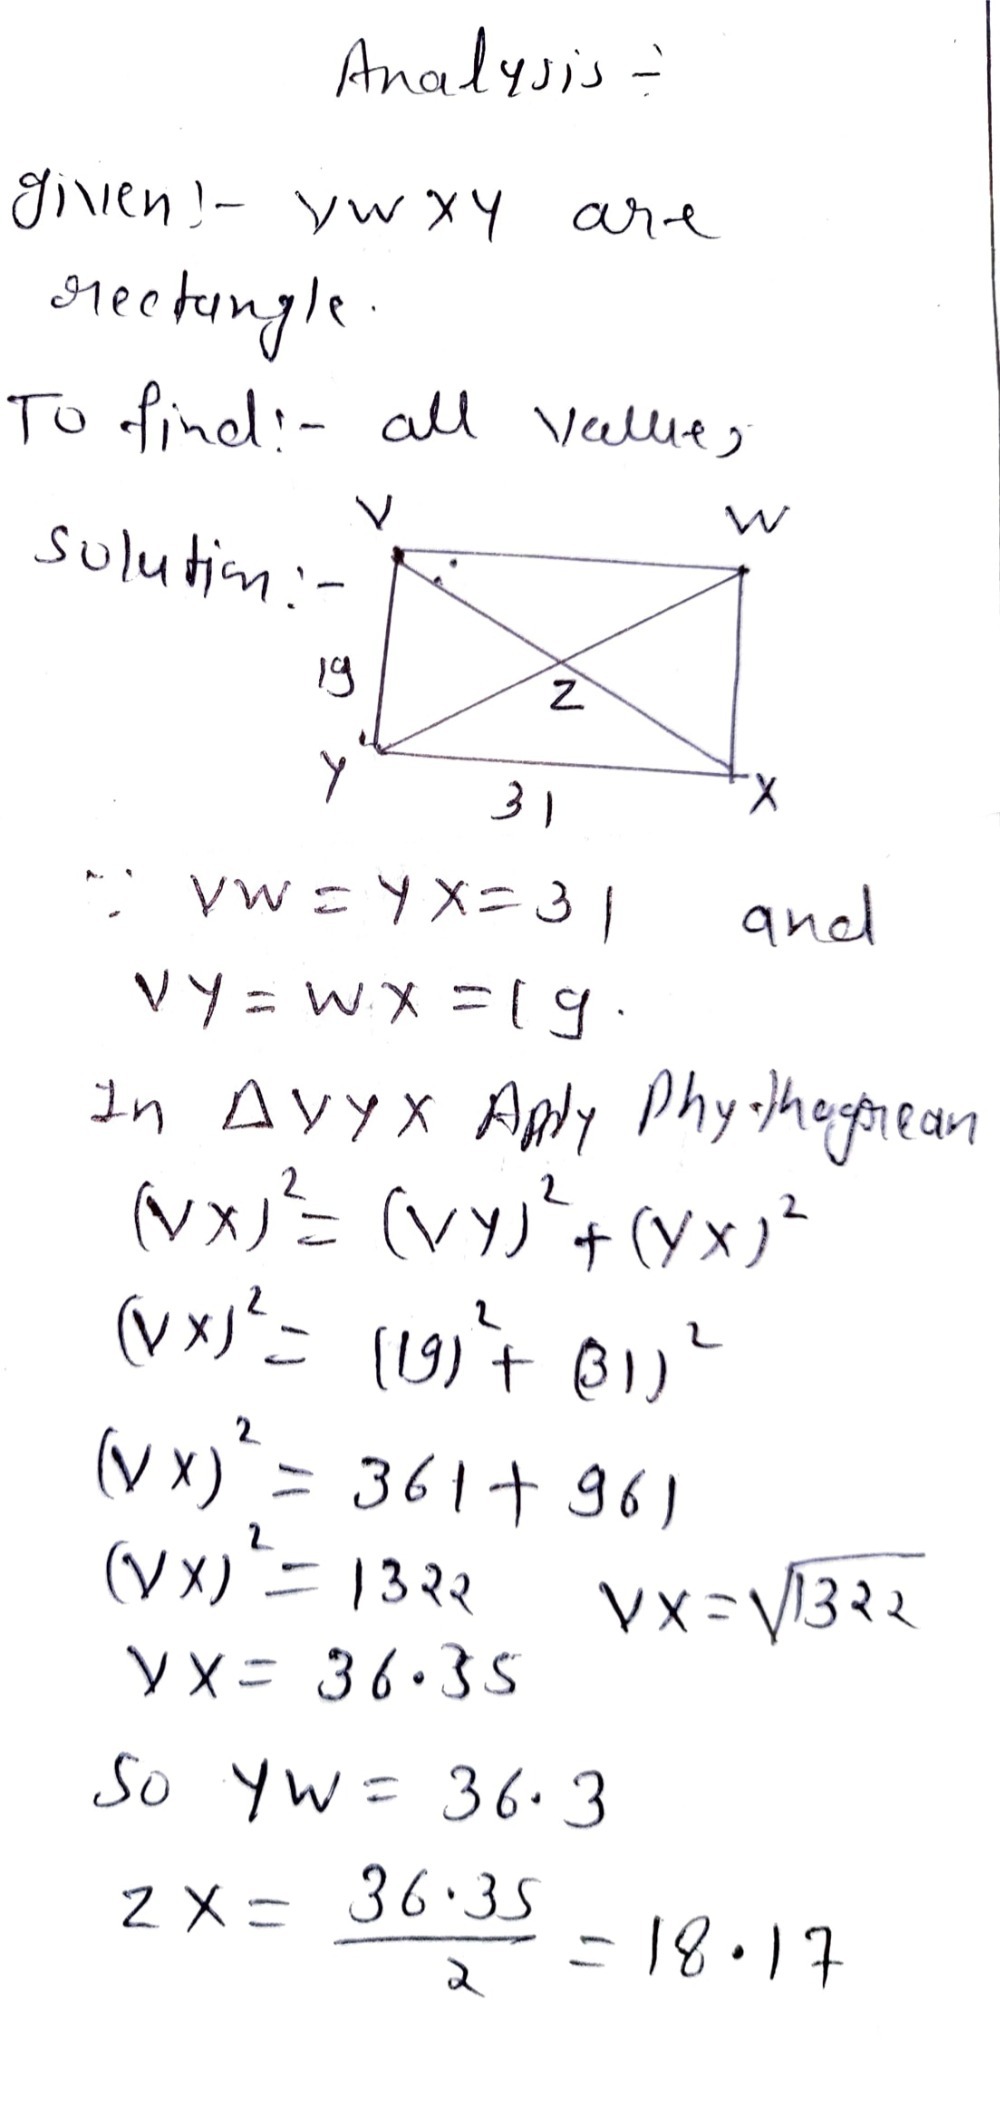 Analysis ÷
given :- VWXY are
rectangle.
To find :- all values
Solution :-
V
W
19
Z
Y
31
X
∵ VW = YX = 31 and
VY = WX = 19.
In ΔVYX Apply Phythagorean
(VX)² = (VY)² + (YX)²
(VX)² = (19)² + (31)²
(VX)² = 361 + 961
(VX)² = 1322 VX = √1322
VX = 36.35
So YW = 36.3
ZX = 36.35/2 = 18.17